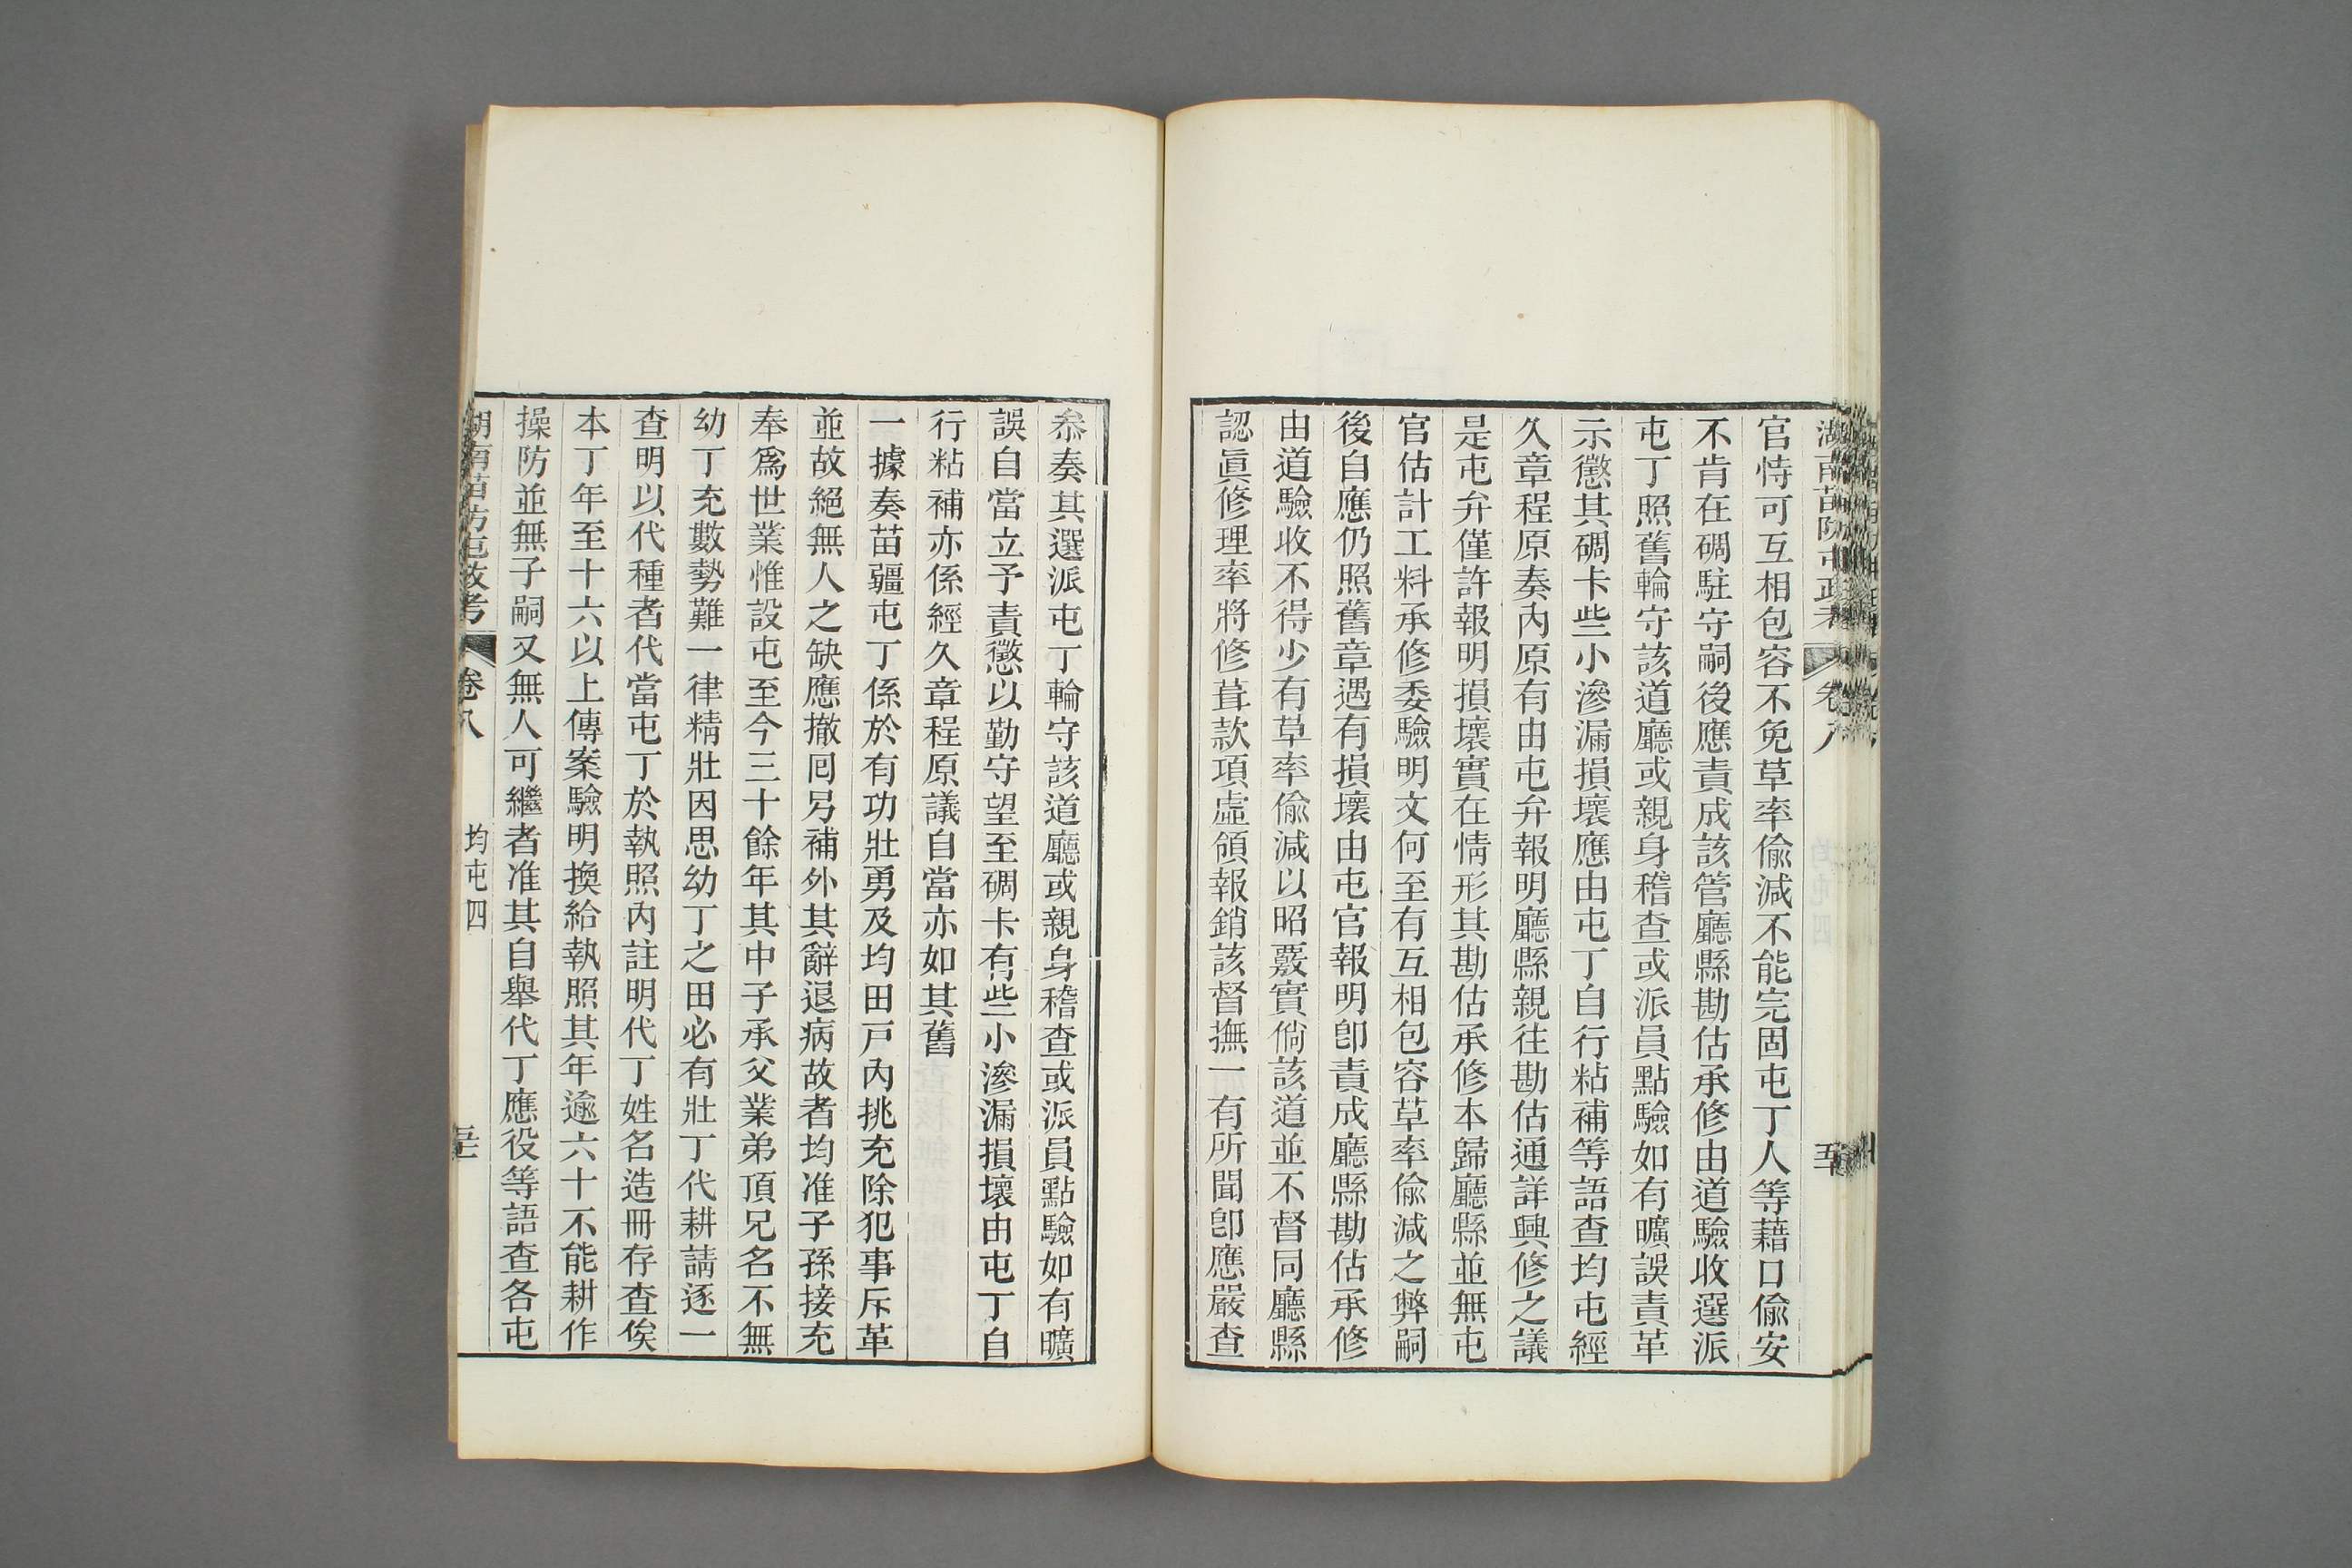 官恃可互相包容不免草率偷減不能完固屯丁人等藉口偷安
不肯在碉駐守嗣後應責成該管廳縣勘估承修由道驗收選派
屯丁照舊輪守該道廳或親身稽查或派員點驗如有曠誤責革
示懲其碉卡些小滲漏損壞應由屯丁自行粘補等語查均屯經
久章程原奏內原有由屯弁報明廳縣親往勘估通詳興修之議
是屯弁僅許報明損壞實在情形其勘估承修本歸廳縣並無屯
官估計工料承修委驗明文何至有互相包容草率偷減之弊嗣
後自應仍照舊章遇有損壞由屯官報明卽責成廳縣勘估承修
由道驗收不得少有草率偷減以昭覈實倘該道並不督同廳縣
認眞修理率將修葺款項虛領報銷該督撫一有所聞卽應嚴查
叅奏其選派屯丁輪守該道廳或親身稽查或派員點驗如有曠
誤自當立予責懲以勤守望至碉卡有些小滲漏損壞由屯丁自
行粘補亦係經久章程原議自當亦如其舊
一據奏苗疆屯丁係於有功壯勇及均田戶內挑充除犯事斥革
並故絕無人之缺應撤囘另補外其辭退病故者均准子孫接充
奉爲世業惟設屯至今三十餘年其中子承父業弟頂兄名不無
幼丁充數勢難一律精壯因思幼丁之田必有壯丁代耕請逐一
查明以代種者代當屯丁於執照內註明代丁姓名造冊存查俟
本丁年至十六以上傳案驗明換給執照其年逾六十不能耕作
操防並無子嗣又無人可繼者准其自舉代丁應役等語查各屯
湖南苗防屯政考 卷八 均屯四